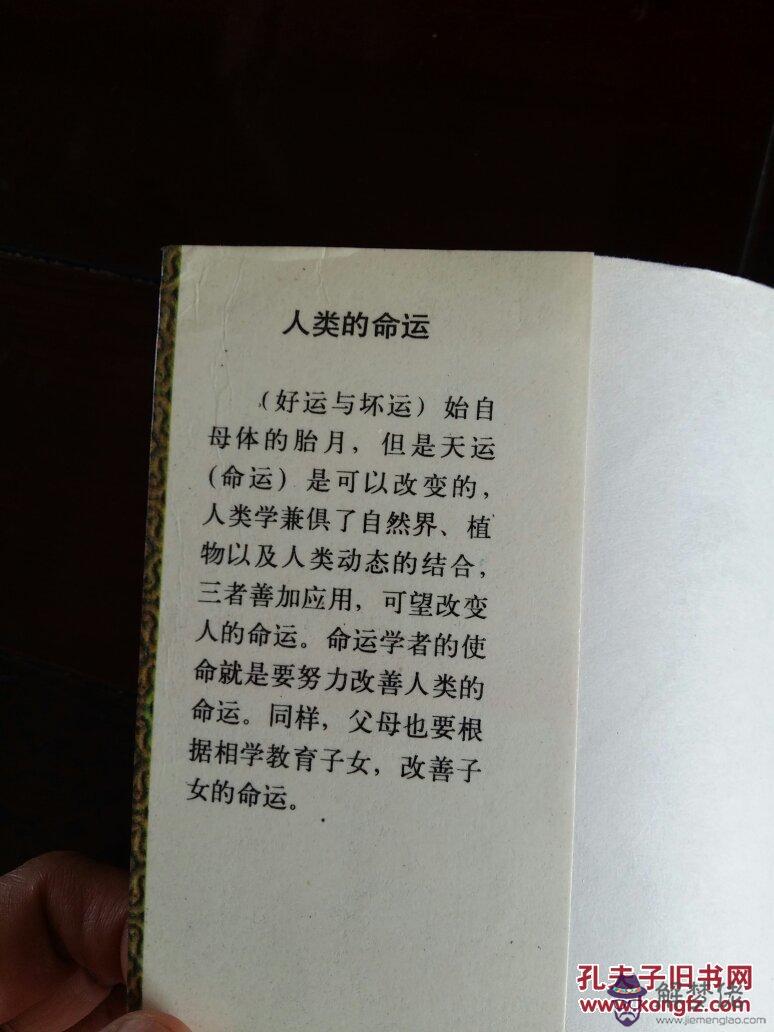 人类的命运
（好运与坏运）始自
母体的胎月，但是天运
（命运）是可以改变的，
人类学兼俱了自然界、植
物以及人类动态的结合，
三者善加应用，可望改变
人的命运。命运学者的使
命就是要努力改善人类的
命运。同样，父母也要根
据相学教育子女，改善子
女的命运。
孔夫子旧书网
www.kongfz.com
解梦佬
www.jiemenglao.com